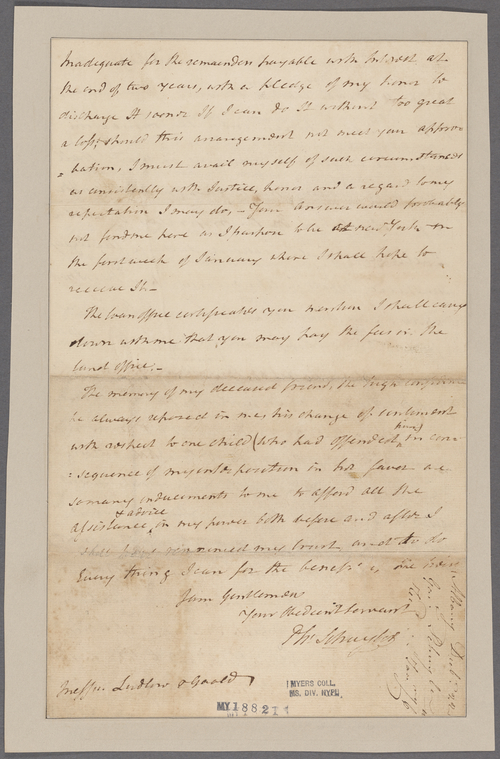 Inadequate for the remainder payable with Interest at
the end of two years, with a pledge of my honor to
discharge It sooner If I can do It without too great
a loss, should this arrangement not meet your appro
=bation, I must avail myself of such circumstances
as consistently with Justice, honor and a regard to my
reputation I may do, – Your answer would probably
not find me here as I purpose to be at new York in
the first week of January where I shall hope to
receive It –
The Loan office certificates you mention I shall carry
down with me that you may pay the fees in the
land office. –
The memory of my deceased friend, the high confidence
he always reposed in me, his change of sentiment
with respect to one child (who had offended him) in con
=sequence of my interposition in her favor are
so many inducements to me to afford all the
assistance & advice in my power both before and after I
shall have renounced my trust and to do
Every thing I can for the benefit of
I am Gentlemen
Your Obedient Servant
Ph: Schuyler
Messrs Ludlow & Goold
Albany
MYERS COLL.
MS. DIV. NYPL.
MY 1882